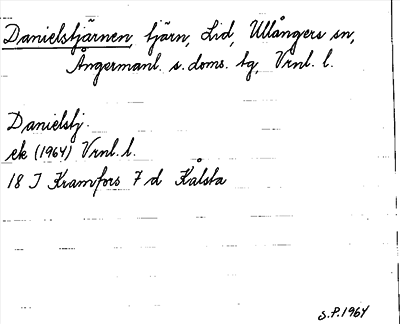 Danielstjärnen, tjärn, Lid, Ullångers sn,
Ångermanl. s. doms. tg, Vrnl. l.
Danielstj.
ek (1964) Vrnl. l.
18 J Kramfors 7 d Kålsta
S.P. 1964